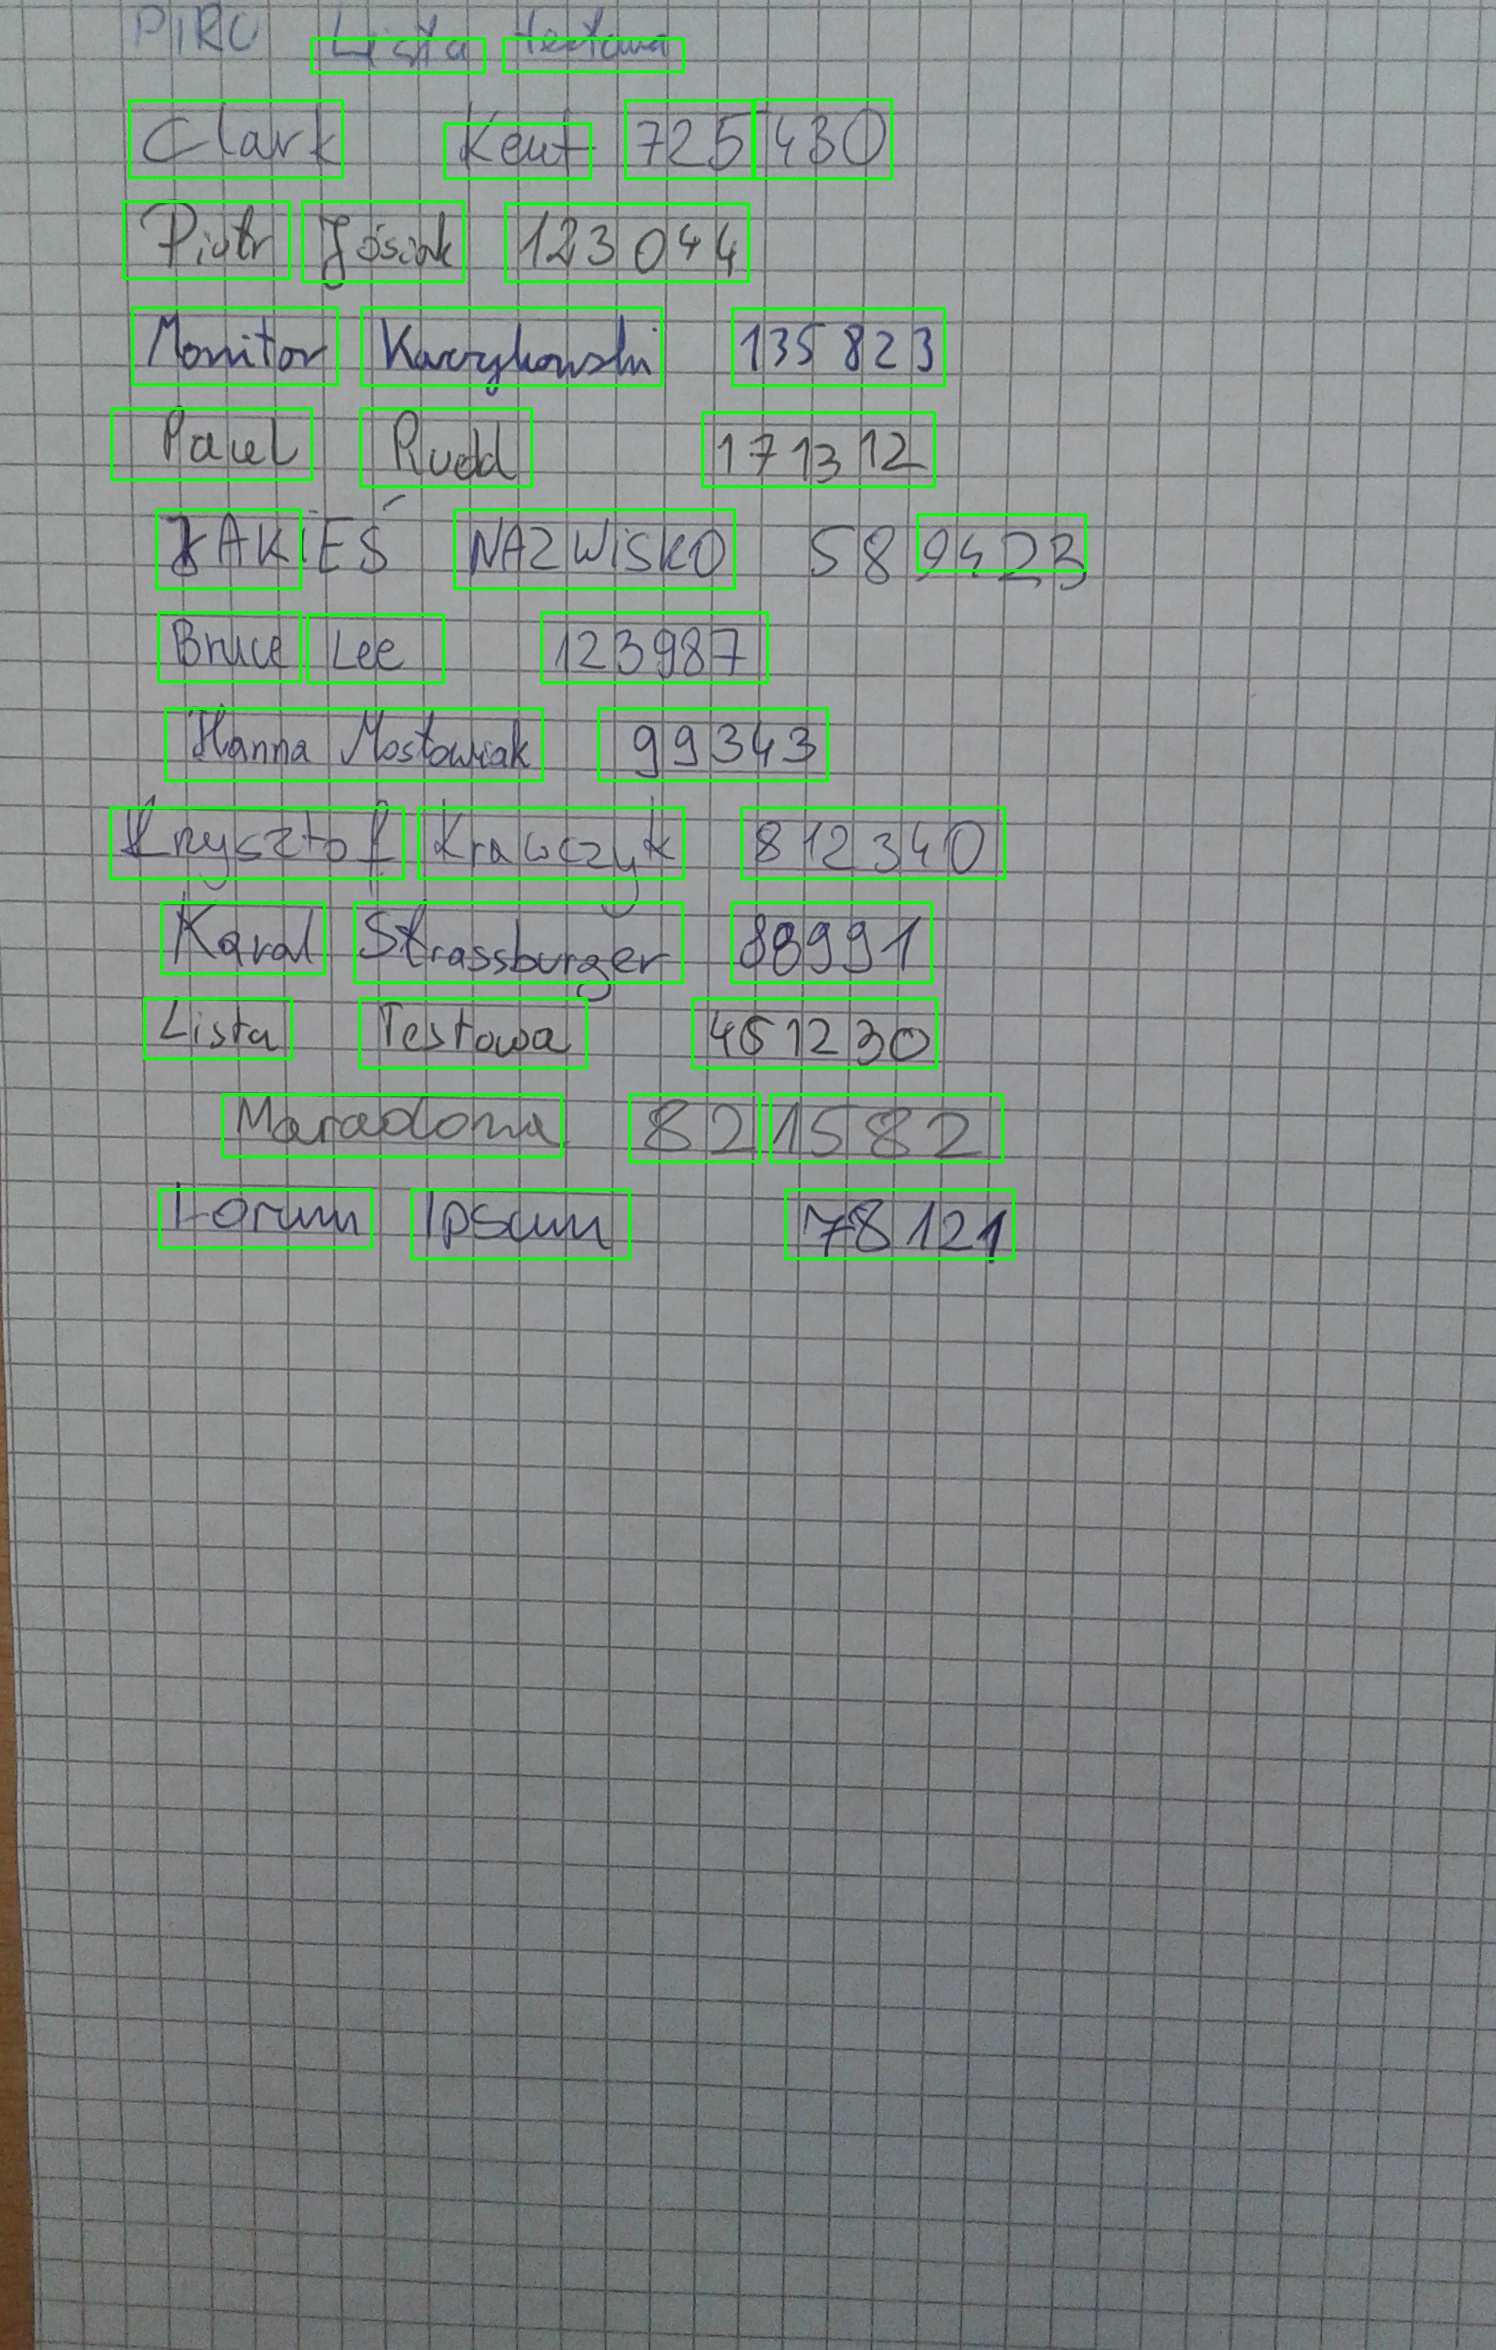 PIRO Lista testowa
Clark Kent 725 430
Piotr Jósiak 123044
Monitor Kaczykowski 135823
Paweł Rudd 171312
JAKiEŚ NAZWiSKO 589423
Bruce Lee 123987
Hanna Mostowiak 99343
Krzysztof Krawczyk 812340
Karol Strassburger 88991
Lista Testowa 451230
Maradona 821582
Lorum Ipsum 78121